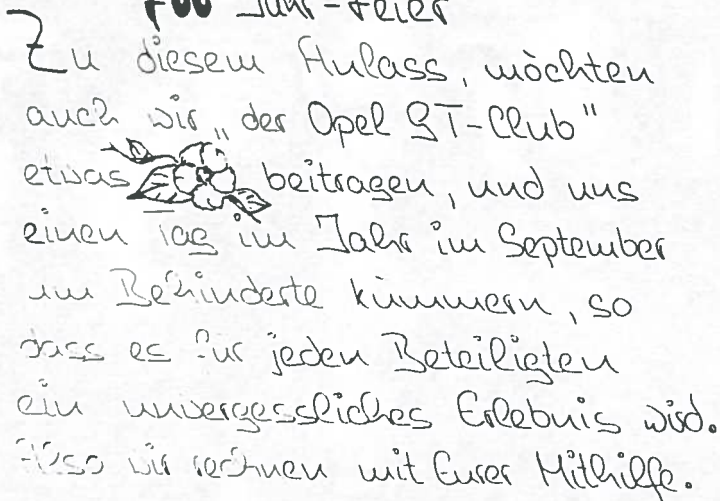 700 Jahr-Feier
Zu diesem Anlass, möchten
auch wir „der Opel GT-Club"
etwas beitragen, und uns
einen Tag im Jahr im September
um Behinderte kümmern, so
dass es für jeden Beteiligten
ein unvergessliches Erlebnis wird.
Also wir rechnen mit Eurer Mithilfe.